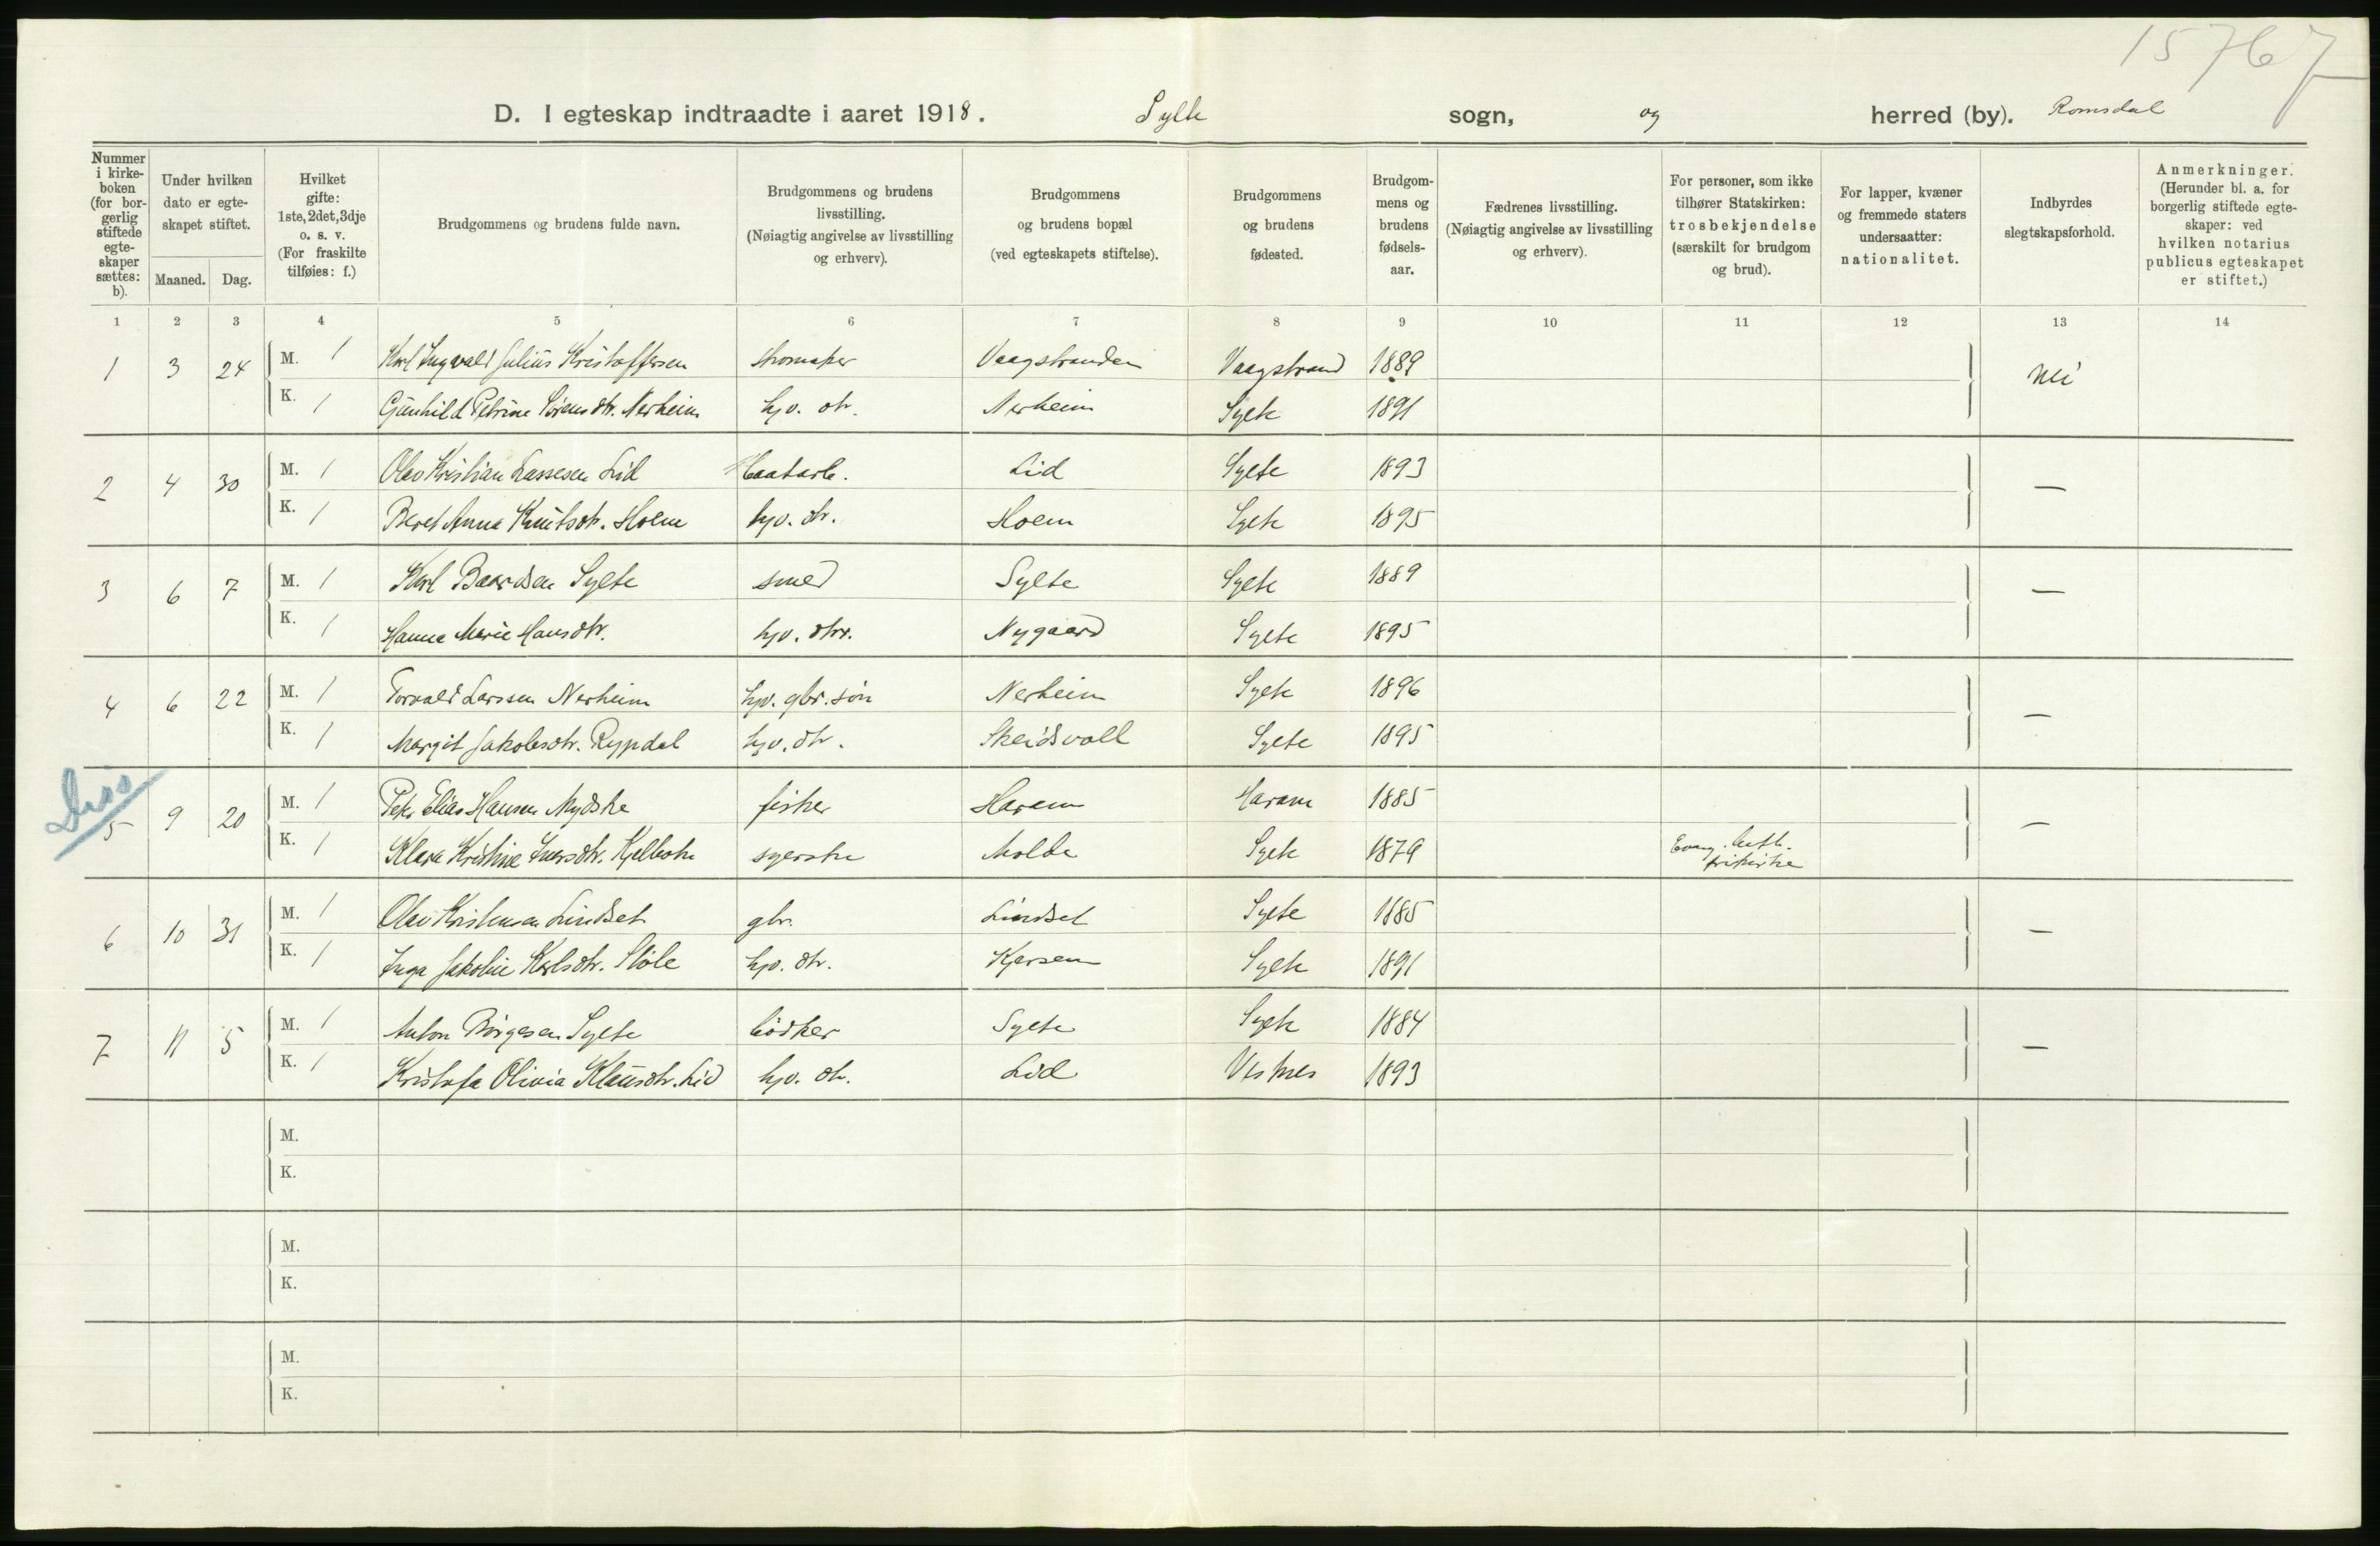 15767
D. I egteskap indtraadte i aaret 1918. Sylte sogn, og herred (by). Romsdal
Nummer i kirkeboken (for borgerlig stiftede egteskaper sættes: b).
Under hvilken dato er egteskapet stiftet.
Maaned. Dag.
Hvilket gifte: 1ste, 2det, 3dje o. s. v. (For fraskilte tilføies: f.)
Brudgommens og brudens fulde navn.
Brudgommens og brudens livsstilling. (Nøiagtig angivelse av livsstilling og erhverv).
Brudgommens og brudens bopæl (ved egteskapets stiftelse).
Brudgommens og brudens fødested.
Brudgommens og brudens fødselsaar.
Fædrenes livsstilling. (Nøiagtig angivelse av livsstilling og erhverv).
For personer, som ikke tilhører Statskirken: trosbekjendelse (særskilt for brudgom og brud).
For lapper, kvæner og fremmede staters undersaatter: nationalitet.
Indbyrdes slegtskapsforhold.
Anmerkninger. (Herunder bl. a. for borgerlig stiftede egteskaper: ved hvilken notarius publicus egteskapet er stiftet.)
1 2 3 4 5 6 7 8 9 10 11 12 13 14
1 3 24 M. 1 Karl Ingvald Julius Kristoffersen skomaker Vaagstranden Vaagstrand 1889 Nei
K. 1 Gunhild Petrine Sørensdtr. Nerheim hjv. dtr. Nerheim Sylte 1891
2 4 30 M. 1 Olav Kristian Lassesen Lid Baatarb. Lid Sylte 1893 —
K. 1 Beret Anna Knutsdtr. Hoem hjv. dtr. Hoem Sylte 1895
3 6 7 M. 1 Karl Baardsen Sylte smed Sylte Sylte 1889 —
K. 1 Hanna Marie Hansdtr. hjv. dtr. Nygaard Sylte 1895
4 6 22 M. 1 Torvald Larssen Nerheim hjv. gbr. søn Nerheim Sylte 1896 —
K. 1 Margit Jakobsdtr. Rypdal hjv. dtr. Skeidsvoll Sylte 1895
Diss
5 9 20 M. 1 Peter Elias Hansen Mydske fisker Haram Haram 1885 —
K. 1 Klara Kristine Iversdtr. Kjelbotn syerske Molde Sylte 1879 Evang. luth. frikirke
6 10 31 M. 1 Olav Kristensen Lindset gbr. Lindset Sylte 1885 —
K. 1 Inga Jakobine Karlsdtr. Støle hjv. dtr. Kjersem Sylte 1891
7 11 5 M. 1 Anton Børgesen Sylte bødker Sylte Sylte 1884 —
K. 1 Kristofa Olivia Klausdtr. Lid hjv. dtr. Lid Vestnes 1893
M.
K.
M.
K.
M.
K.